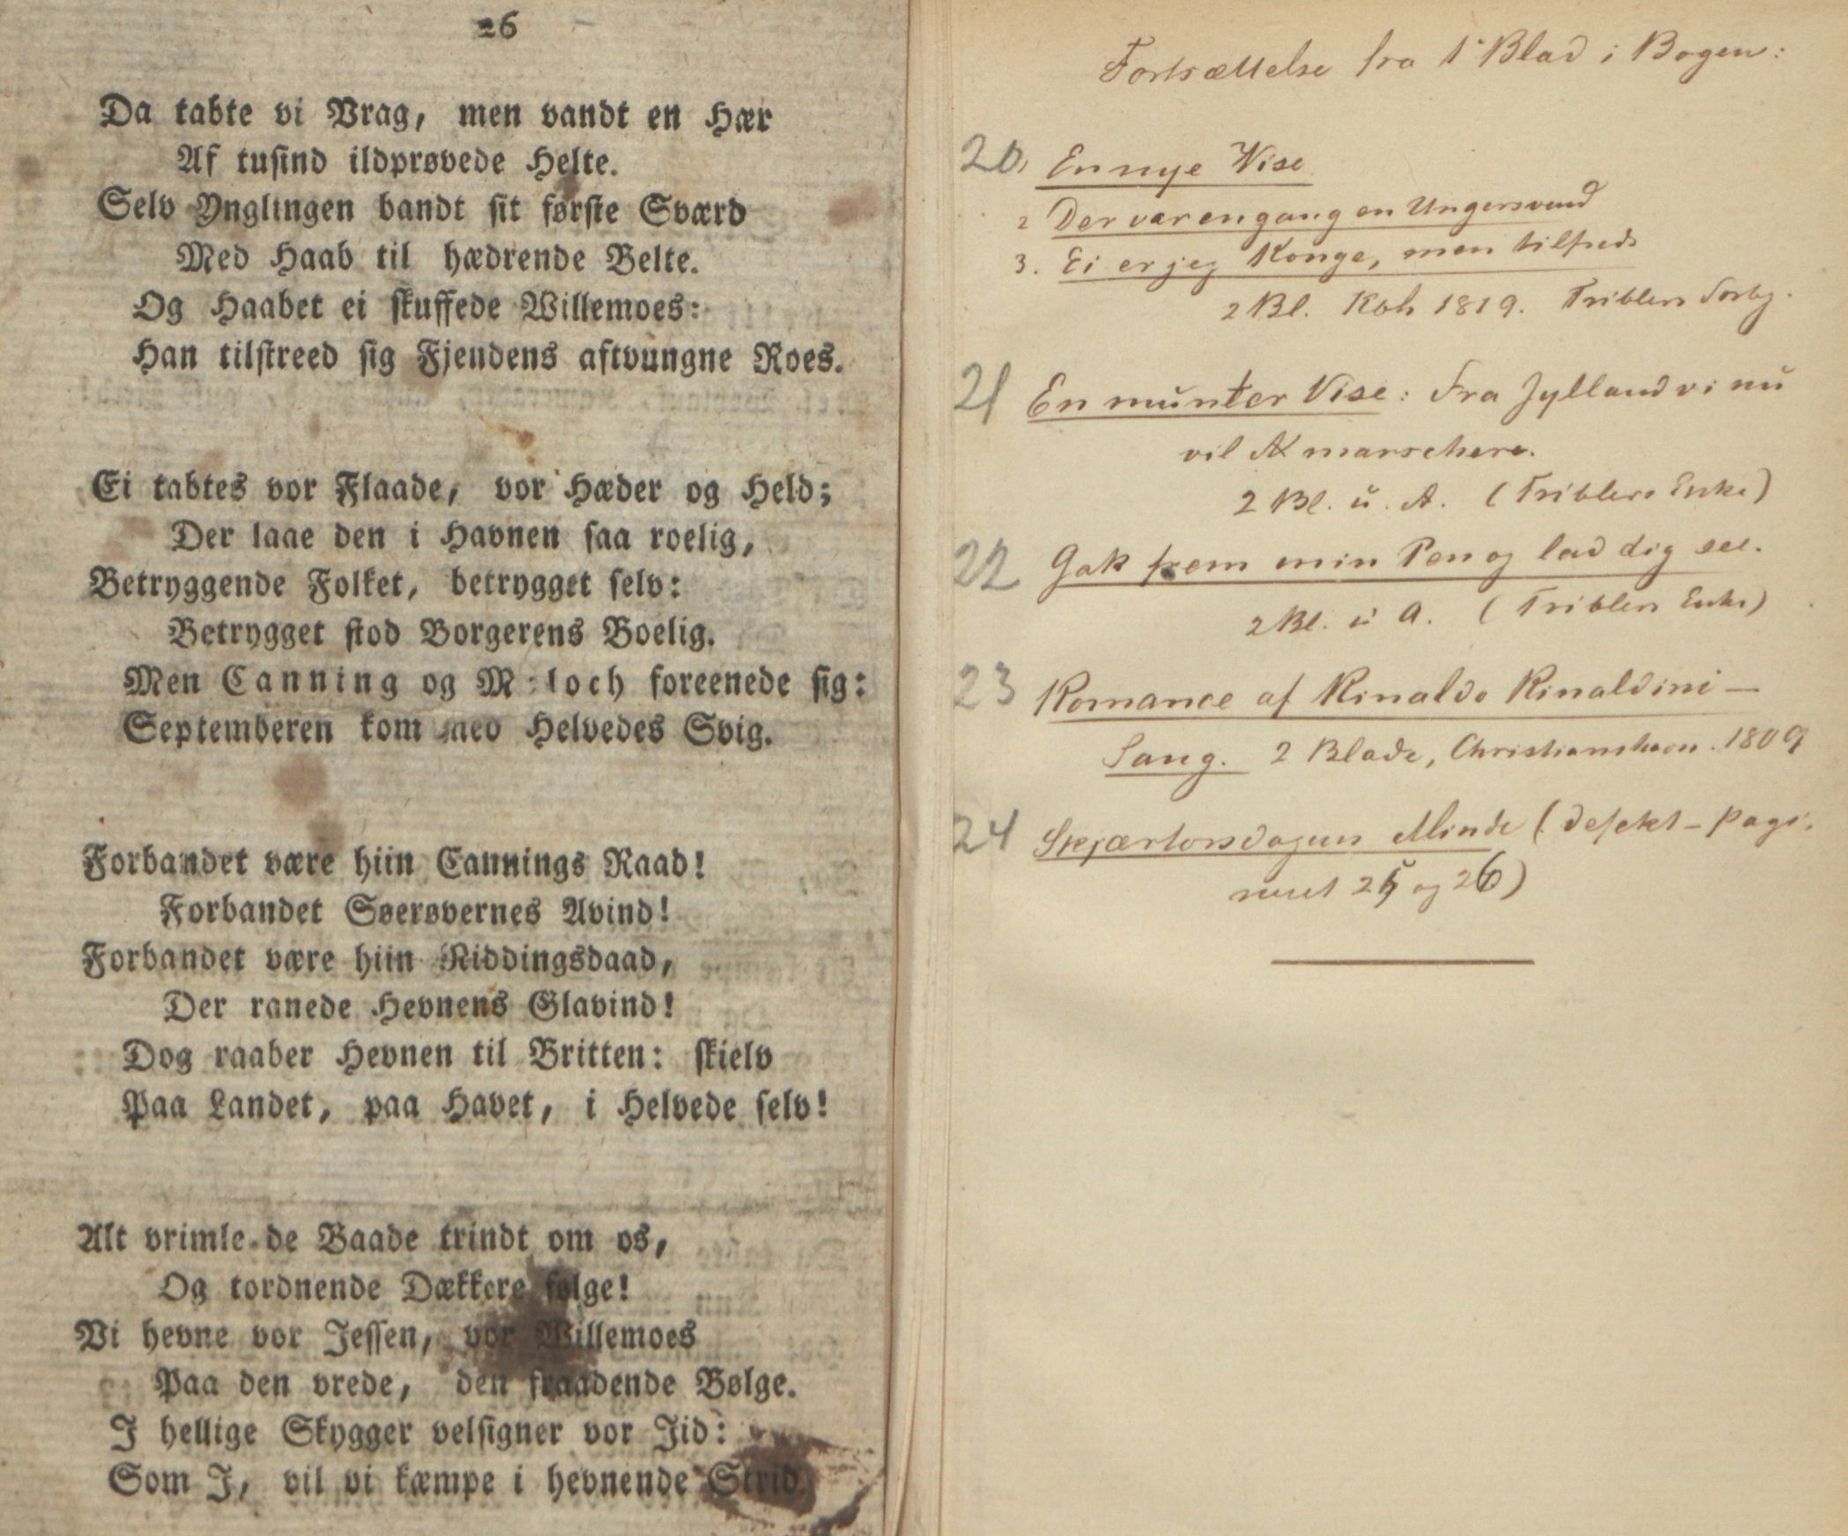 26
Da tabte vi Vrag, men vandt en Hær
Af tusind ildprøvede Helte.
Selv Ynglingen bandt sit første Sværd
Med Haab til hædrende Belte.
Og Haabet ei skuffede Willemoes:
Han tilstreed sig Fjendens aftvungne Roes.
Ei tabtes vor Flaade, vor Hæder og Held;
Der laae den i Havnen saa roelig,
Betryggende Folket, betrygget selv:
Betrygget stod Borgerens Boelig.
Men Canning og M loch foreenede sig:
Septemberen kom med Helvedes Svig.
Forbandet være hiin Cannings Raad!
Forbandet Søerøvernes Avind!
Forbandet være hiin Niddingsdaad,
Der ranede Hevnens Glavind!
Dog raaber Hevnen til Britten: skielv
Paa Landet, paa Havet, i Helvede selv!
Alt vrimle de Baade trindt om os,
Og tordnende Dækkere følge!
Vi hevne vor Jessen, vor Willemoes
Paa den vrede, den fraadende Bølge.
I hellige Skygger velsigner vor Iid:
Som I, vil vi kæmpe i hevnende Strid.
Fortsættelse fra 1' Blad i Bogen:
20, En nye Vise
2 Der var engang en Ungersvend
3. Ei er jeg Konge, men tilfreds
2 Bl. Kbh 1819. Triblers Forlg.
21 En munter Vise: Fra Jylland vi nu
vil marschere.
2 Bl. u. A. (Triblers Enke)
22 Gak frem min Pen og lad dig see.
2 Bl. u A. (Triblers Enke)
23 Romance af Rinaldo Rinaldini —
Sang. 2 Blade, Christianshavn. 1809
24 Skjærtorsdagens Minde (defekt - pagi-
neret 25 og 26)